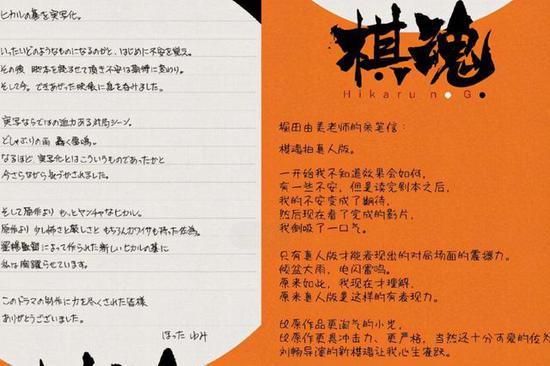 ヒカルの碁を実写化。
いったいどのようなものになるのかと、はじめに不安を覚え、
その後 脚本を読ませて頂き不安は期待に変わり。
そして今、できあがった映像に息を呑みました。
実写ならではの迫力ある対局シーン。
どしゃぶりの雨 轟く雷鳴。
なるほど 実写化とはこういうものであったかと
今さらながら気づかされました。
そして原作より もっとヤンチャなヒカル。
原作より 少し怖さと厳しさと もちろんカワイサも持った佐為。
監督によって作られた新しいヒカルの碁に
私は胸躍らせています。
このドラマの制作に力を尽くされた皆様
ありがとうございました。
ほった ゆみ
棋魂
Hikaru no Go
堀田由美老师的亲笔信：
棋魂拍真人版。
一开始我不知道效果会如何，
有一些不安，但是读完剧本之后，
我的不安变成了期待，
然后现在看了完成的影片，
我倒吸了一口气。
只有真人版才能表现出的对局场面的震撼力。
倾盆大雨，电闪雷鸣。
原来如此，我现在才理解，
原来真人版是这样的有表现力。
比原作品更淘气的小光，
比原作更具冲击力、更严格，当然还十分可爱的佐为
刘畅导演的新棋魂让我心生雀跃。